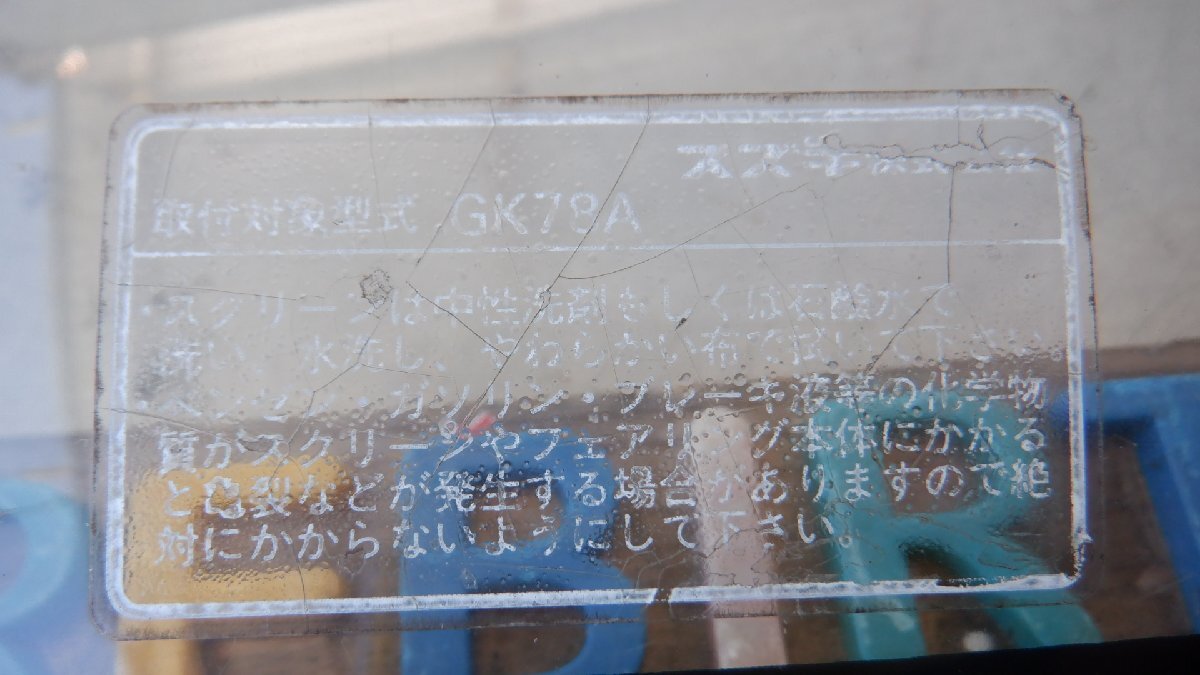 スズキ株式会社
取付対象型式 GK78A
・スクリーンは中性洗剤もしくは石鹸水で
洗い、水洗し、やわらかい布で拭いて下さい。
ベンジン・ガソリン・ブレーキ液等の化学物
質がスクリーンやフェアリング本体にかかる
と亀裂などが発生する場合がありますので絶
対にかからないようにして下さい。
B I R